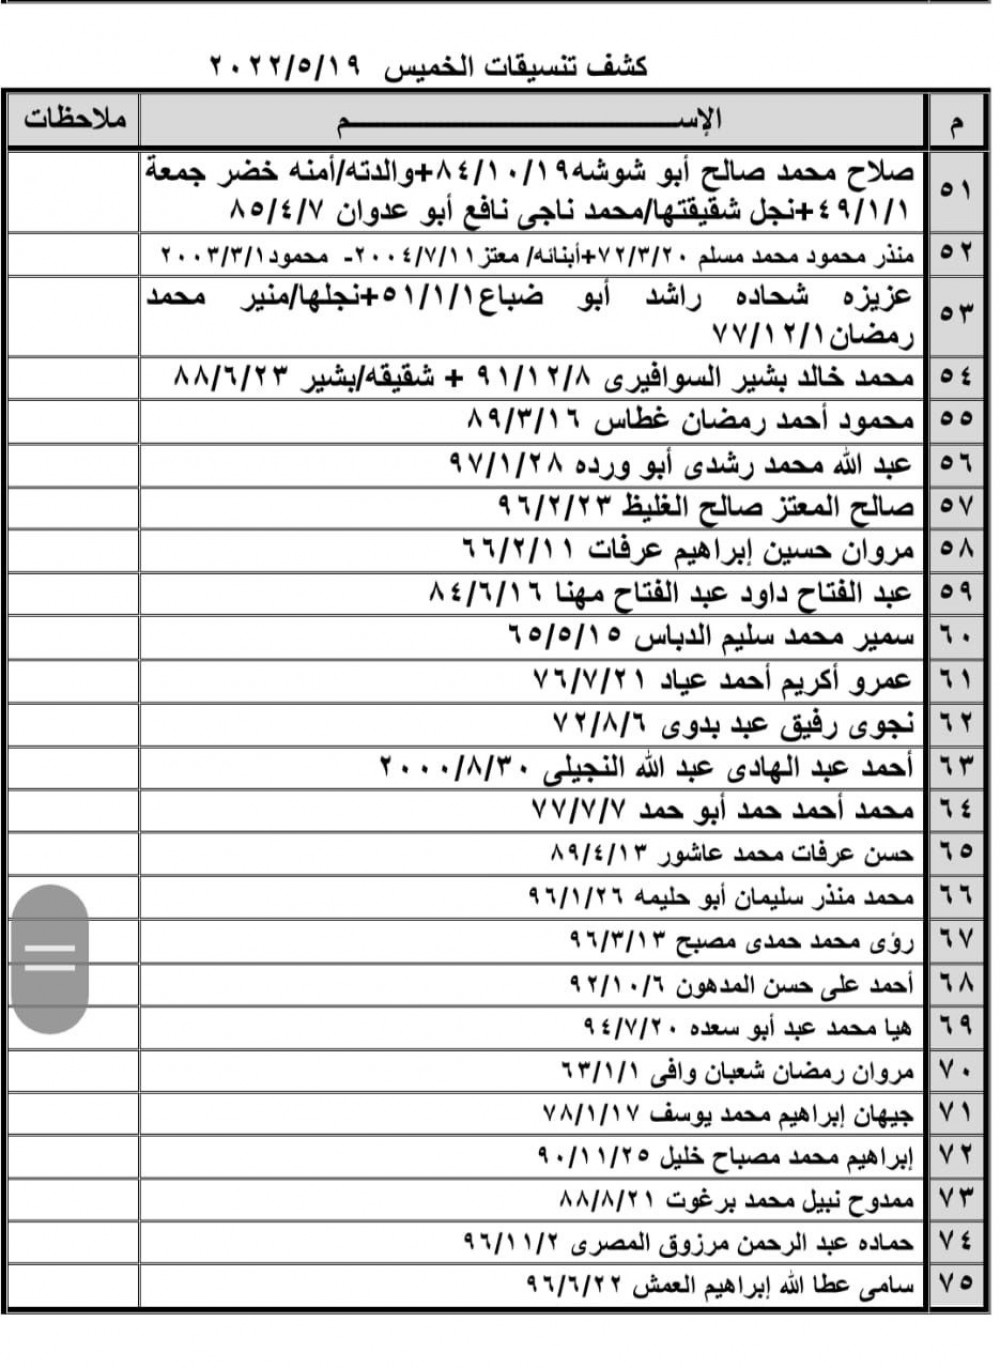 كشف تنسيقات الخميس ٢٠٢٢/٥/١٩
م الإســـم ملاحظات
٥١ صلاح محمد صالح أبو شوشه ٨٤/١٠/١٩+والدته/أمنه خضر جمعة
٤٩/١/١+نجل شقيقتها/محمد ناجى نافع أبو عدوان ٨٥/٤/٧
٥٢ منذر محمود محمد مسلم ٧٢/٣/٢٠+أبنائه/ معتز ٢٠٠٤/٧/١١- محمود ٢٠٠٣/٣/١
٥٣ عزيزه شحاده راشد أبو ضباع ٥١/١/١+نجلها/منير محمد
رمضان ٧٧/١٢/١
٥٤ محمد خالد بشير السوافيرى ٩١/١٢/٨ + شقيقه/بشير ٨٨/٦/٢٣
٥٥ محمود أحمد رمضان غطاس ٨٩/٣/١٦
٥٦ عبد الله محمد رشدى أبو ورده ٩٧/١/٢٨
٥٧ صالح المعتز صالح الغليظ ٩٦/٢/٢٣
٥٨ مروان حسين إبراهيم عرفات ٦٦/٢/١١
٥٩ عبد الفتاح داود عبد الفتاح مهنا ٨٤/٦/١٦
٦٠ سمير محمد سليم الدباس ٦٥/٥/١٥
٦١ عمرو أكريم أحمد عياد ٧٦/٧/٢١
٦٢ نجوى رفيق عبد بدوى ٧٢/٨/٦
٦٣ أحمد عبد الهادى عبد الله النجيلى ٢٠٠٠/٨/٣٠
٦٤ محمد أحمد حمد أبو حمد ٧٧/٧/٧
٦٥ حسن عرفات محمد عاشور ٨٩/٤/١٣
٦٦ محمد منذر سليمان أبو حليمه ٩٦/١/٢٦
٦٧ رؤى محمد حمدى مصبح ٩٦/٣/١٣
٦٨ أحمد على حسن المدهون ٩٢/١٠/٦
٦٩ هيا محمد عبد أبو سعده ٩٤/٧/٢٠
٧٠ مروان رمضان شعبان وافى ٦٣/١/١
٧١ جيهان إبراهيم محمد يوسف ٧٨/١/١٧
٧٢ إبراهيم محمد مصباح خليل ٩٠/١١/٢٥
٧٣ ممدوح نبيل محمد برغوت ٨٨/٨/٢١
٧٤ حماده عبد الرحمن مرزوق المصرى ٩٦/١١/٢
٧٥ سامى عطا الله إبراهيم العمش ٩٦/٦/٢٢